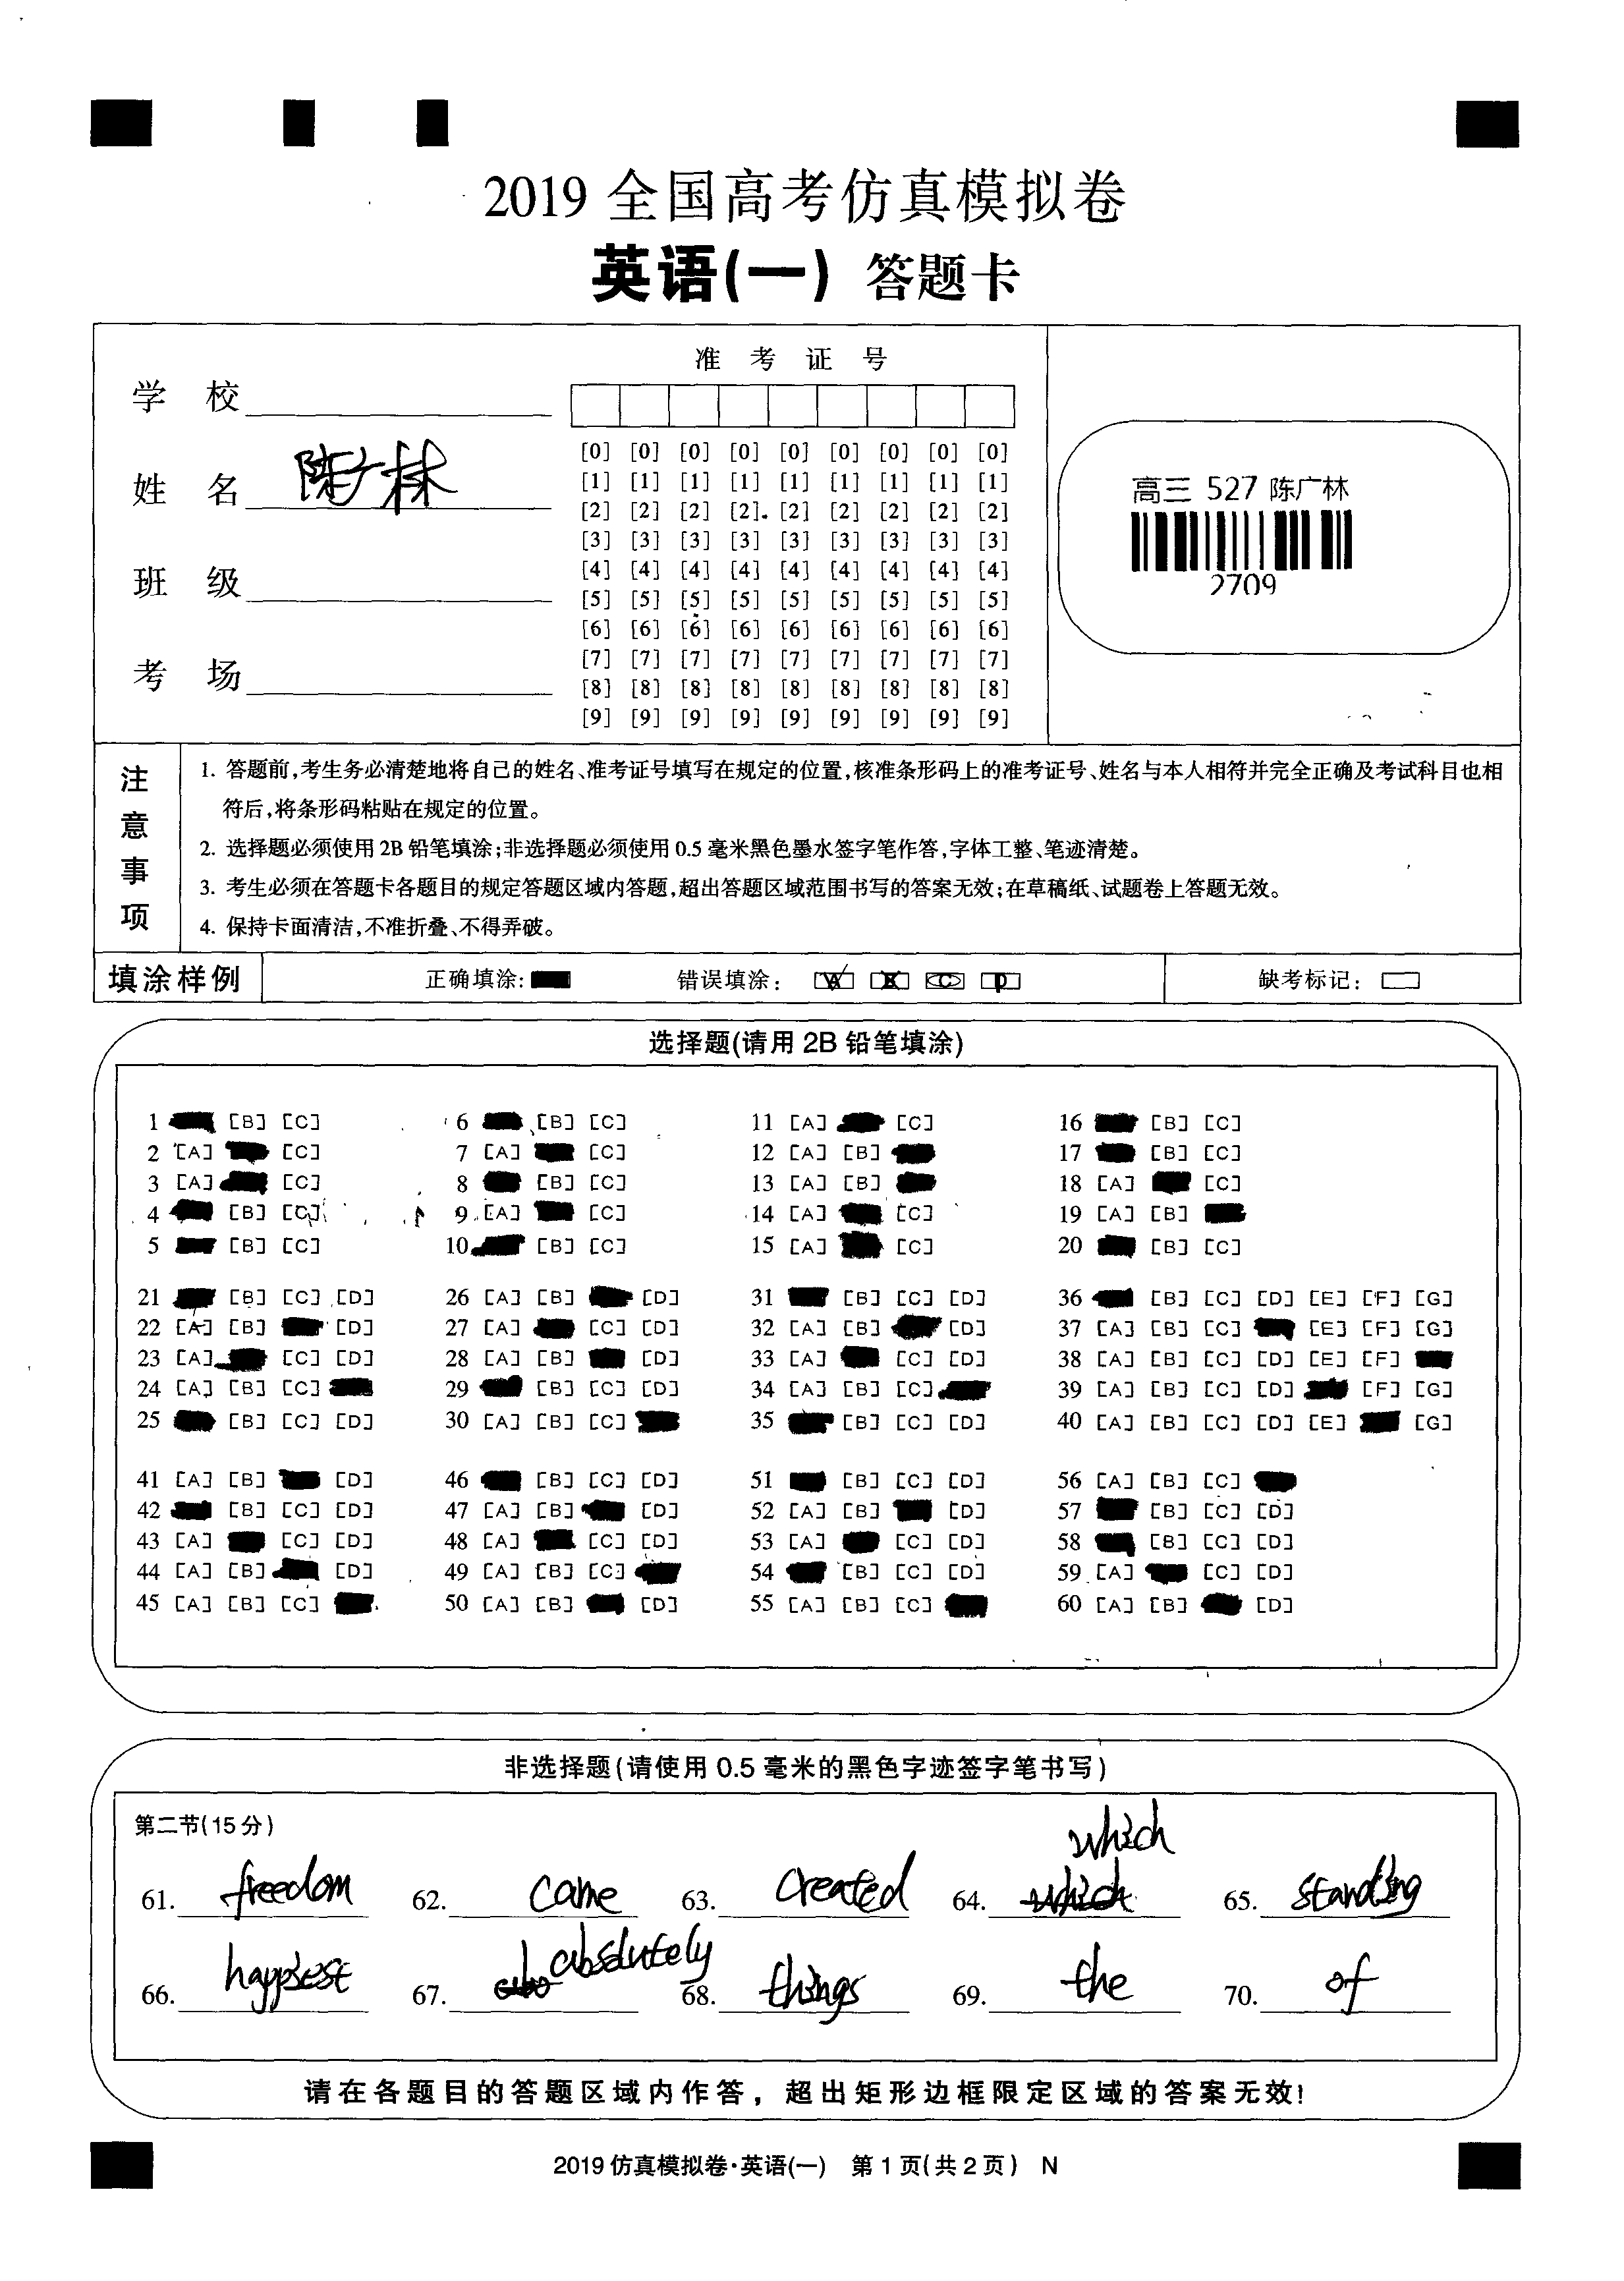 2019 全国高考仿真模拟卷
英语(一) 答题卡
准 考 证 号
学 校
姓 名 陈广林
班 级
考 场
[0] [0] [0] [0] [0] [0] [0] [0] [0]
[1] [1] [1] [1] [1] [1] [1] [1] [1]
[2] [2] [2] [2] [2] [2] [2] [2] [2]
[3] [3] [3] [3] [3] [3] [3] [3] [3]
[4] [4] [4] [4] [4] [4] [4] [4] [4]
[5] [5] [5] [5] [5] [5] [5] [5] [5]
[6] [6] [6] [6] [6] [6] [6] [6] [6]
[7] [7] [7] [7] [7] [7] [7] [7] [7]
[8] [8] [8] [8] [8] [8] [8] [8] [8]
[9] [9] [9] [9] [9] [9] [9] [9] [9]
高三 527 陈广林
2709
注意事项
1. 答题前,考生务必清楚地将自己的姓名、准考证号填写在规定的位置,核准条形码上的准考证号、姓名与本人相符并完全正确及考试科目也相
符后,将条形码粘贴在规定的位置。
2. 选择题必须使用 2B 铅笔填涂;非选择题必须使用 0.5 毫米黑色墨水签字笔作答,字体工整、笔迹清楚。
3. 考生必须在答题卡各题目的规定答题区域内答题,超出答题区域范围书写的答案无效;在草稿纸、试题卷上答题无效。
4. 保持卡面清洁,不准折叠、不得弄破。
填涂样例 正确填涂: 错误填涂: A B C D 缺考标记:
选择题(请用 2B 铅笔填涂)
1 [B] [C] 6 [B] [C] 11 [A] [C] 16 [B] [C]
2 [A] [C] 7 [A] [C] 12 [A] [B] 17 [B] [C]
3 [A] [C] 8 [B] [C] 13 [A] [B] 18 [A] [C]
4 [B] [C] 9 [A] [C] 14 [A] [C] 19 [A] [B]
5 [B] [C] 10 [B] [C] 15 [A] [C] 20 [B] [C]
21 [B] [C] [D] 26 [A] [B] [D] 31 [B] [C] [D] 36 [B] [C] [D] [E] [F] [G]
22 [A] [B] [D] 27 [A] [C] [D] 32 [A] [B] [D] 37 [A] [B] [C] [E] [F] [G]
23 [A] [C] [D] 28 [A] [B] [D] 33 [A] [C] [D] 38 [A] [B] [C] [D] [E] [F]
24 [A] [B] [C] 29 [B] [C] [D] 34 [A] [B] [C] 39 [A] [B] [C] [D] [F] [G]
25 [B] [C] [D] 30 [A] [B] [C] 35 [B] [C] [D] 40 [A] [B] [C] [D] [E] [G]
41 [A] [B] [D] 46 [B] [C] [D] 51 [B] [C] [D] 56 [A] [B] [C]
42 [B] [C] [D] 47 [A] [B] [D] 52 [A] [B] [D] 57 [B] [C] [D]
43 [A] [C] [D] 48 [A] [C] [D] 53 [A] [C] [D] 58 [B] [C] [D]
44 [A] [B] [D] 49 [A] [B] [C] 54 [B] [C] [D] 59 [A] [C] [D]
45 [A] [B] [C] 50 [A] [B] [D] 55 [A] [B] [C] 60 [A] [B] [D]
非选择题(请使用 0.5 毫米的黑色字迹签字笔书写)
第二节(15 分)
61. freedom 62. came 63. created 64. which 65. standing
66. happiest 67. absolutely 68. things 69. the 70. of
请在各题目的答题区域内作答，超出矩形边框限定区域的答案无效!
2019 仿真模拟卷·英语(一) 第 1 页(共 2 页) N